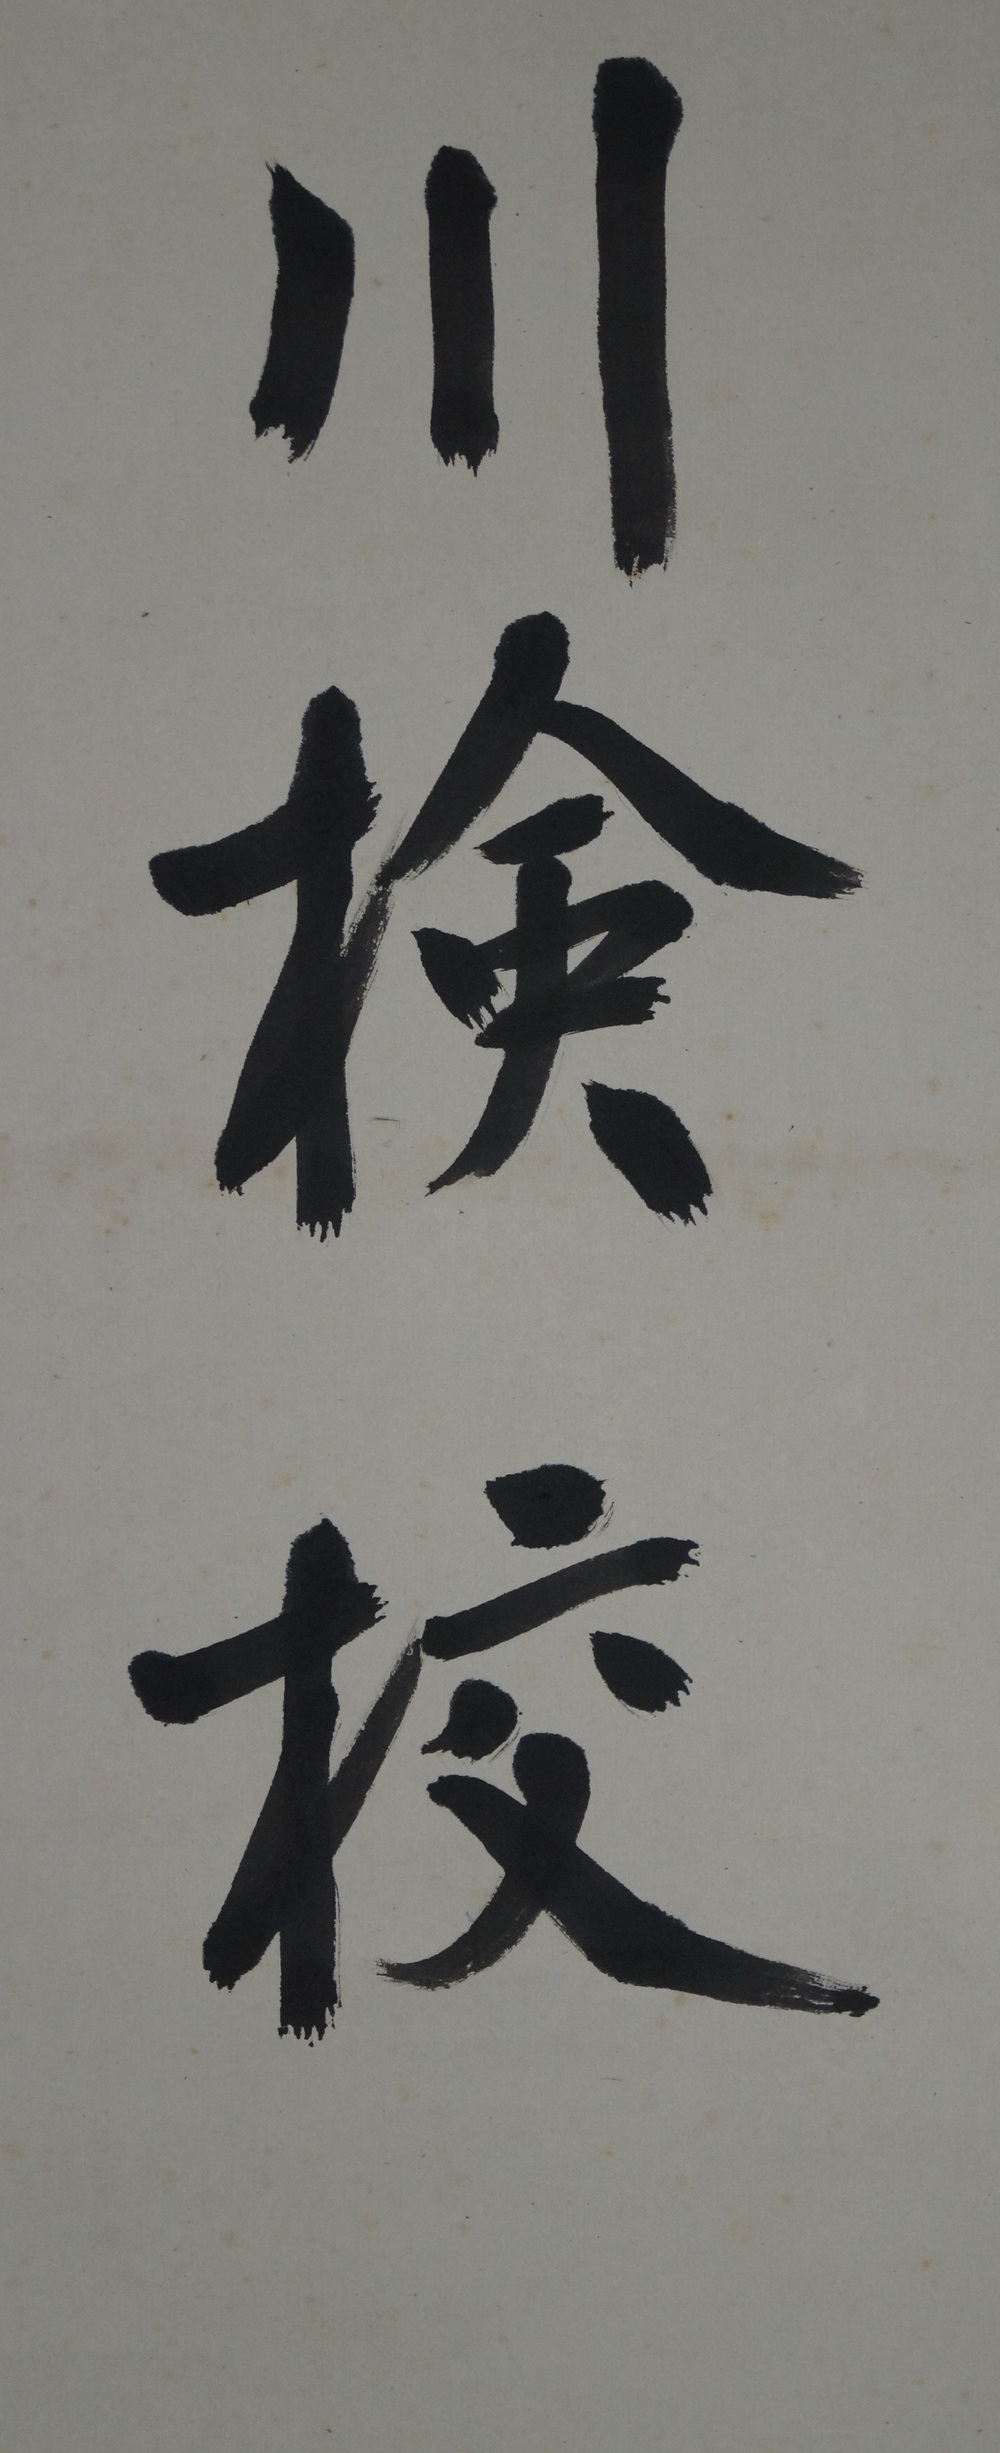 川検校